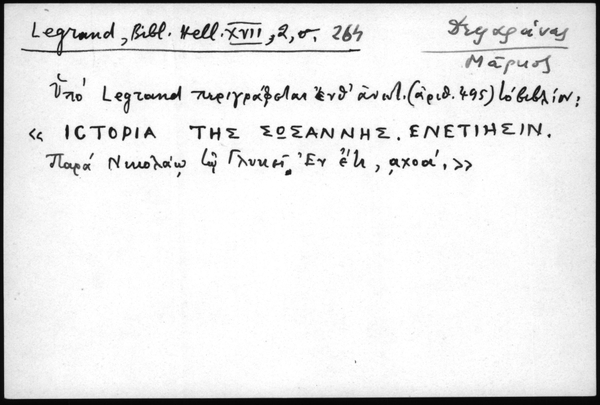 Legrand, Bibl. Hell. XVII, 2, σ. 264
Δεφαράνας
Μάρκος
Ὑπό Legrand περιγράφεται ἔνθ' ἀνωτ. (ἀριθ. 495) τό βιβλίον:
« ΙCΤΟΡΙΑ ΤΗΣ ΣΩΣΑΝΝΗΣ. ΕΝΕΤΙΗΣΙΝ.
Παρά Νικολάῳ τῷ Γλυκεῖ. Ἐν ἔτει, αχοα΄. »